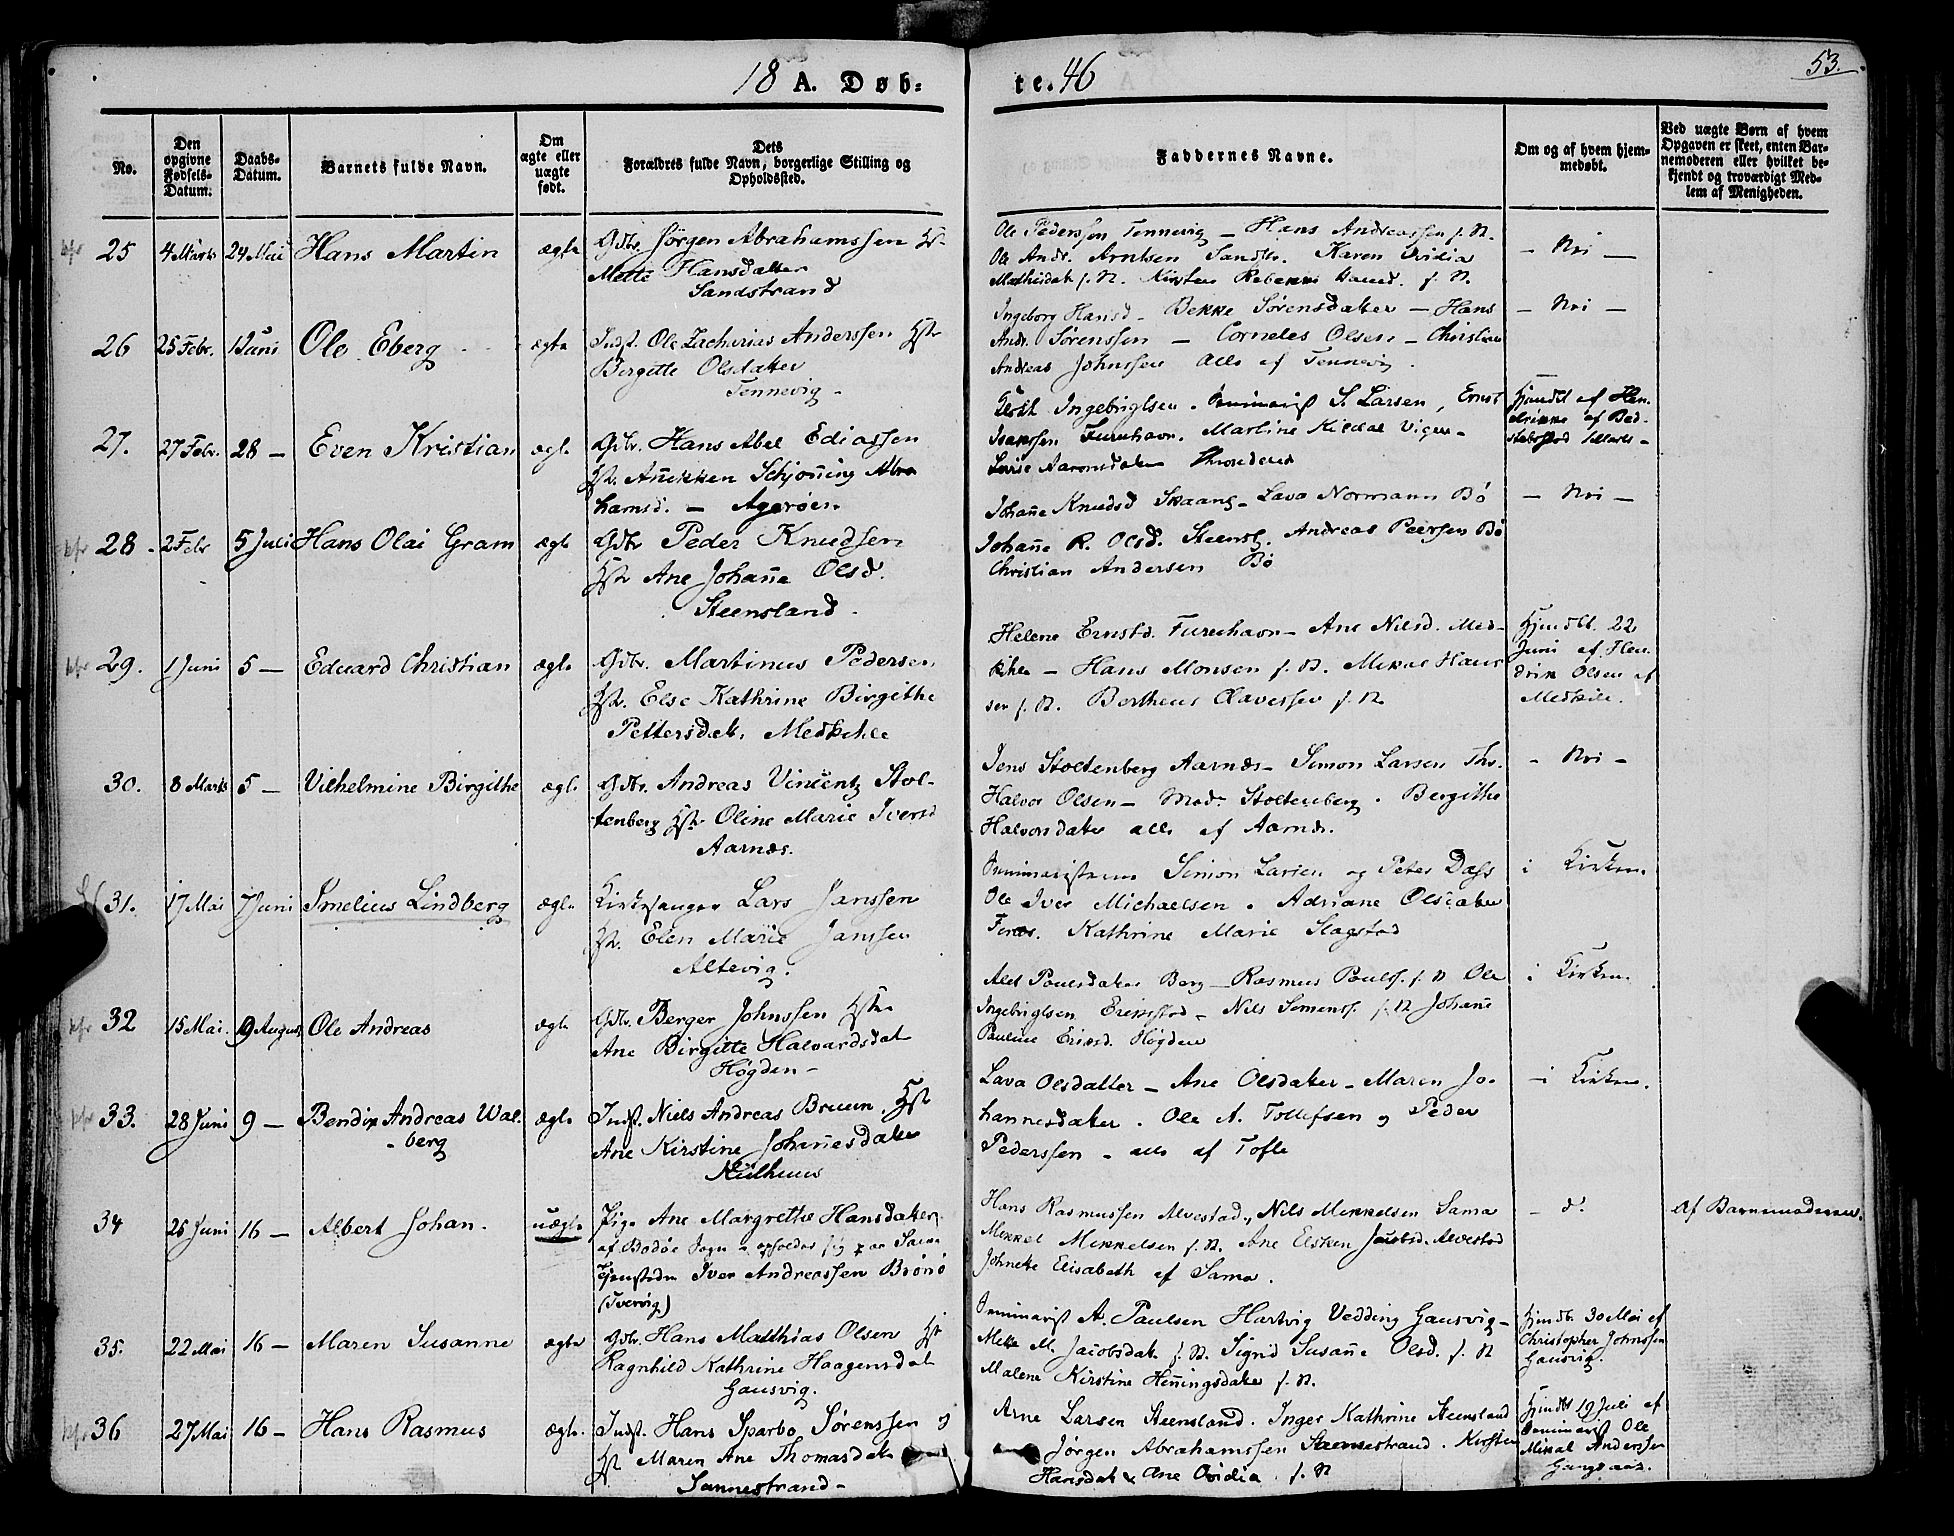 18 A. Døb-
te. 46
53.
No.
Den opgivne Fødsels-Datum.
Daabs-Datum.
Barnets fulde Navn.
Om ægte eller uægte født.
Dets Forældres fulde Navn, borgerlige Stilling og Opholdssted.
Faddernes Navne.
Om og af hvem hjemmedøbt.
Ved uægte Børn af hvem Opgaven er skeet, enten Barnemoderen eller hvilket bekjendt og troværdigt Medlem af Menigheden.
25 4 Marts 24 Mai Hans Martin ægte
Gdbr. Jørgen Abrahamssen Hst.
Mette Hansdatter
Sandstrand
Ole Pederssen Tennevig — Hans Andreassen s. St.
Ole Andr. Arntsen Sandstr. Karen Ovidia
Mathisdat s. St. Kirsten Rebekka s. St.
— Nei —
26 25 Febr. 1 Juni Ole Eberg ægte
Indst. Ole Zacharias Anderssen Hstr
Birgitte Olsdatter
Tennevig -
Ingeborg Hansd - Bekke Sørensdatter — Hans
Andr. Sørenssen — Corneles Olsen — Christian
Andreas Johnssen alle af Tennevig.
— Nei —
27. 27 Febr. 28 — Even Kristian ægte
Gdbr. Hans Abel Ediassen
Hst. Anikken Schjøning Abra
hamsd. — Agerøen
Ingebrigtsen. Seminarist S. Larsen, Ernst
Isakssen Furuhavn. Martine Kildal Vigen -
Aaronsdatter
Hjemdbt af Hen-
drikke af Bed-
28 2 Febr 5 Juli Hans Olai Gram ægte
Gdbr Peder Knudsen
Hst Ane Johanna Olsd.
Steensland.
Johanne Knudsd Skaang - Lava Normann Bø
Johanne R. Olsd. Steensl. Andreas Peersen Bø
Christian Andersen Bø
— Nei —
29. 1 Juni 5 — Eduard Christian ægte
Gdbr. Martinus Pedersen
Hst. Else Kathrine Birgithe
Pettersdatt. Medkihle
Helene Ernstd. Furuhavn — Ane Nilsd. Med-
kihle — Hans Monsen s. St. Mikal Han-
sen s. St. Bertheus Olavessen s. St
Hjemdbt. 22
Juni af Hen-
drik Olsen af
Medkile.
30. 8 Marts 5 — Vilhelmine Birgithe ægte
Gdbr. Andreas Vincentz Stol-
tenberg Hst. Oline Marie Iversd
Aarnæs.
Jens Stoltenberg Aarnæs - Simon Larsen
Halvor Olsen — Mad. Stoltenberg. Bergithe
Halvorsdatter alle af Aarnæs.
— Nei —
31. 17 Mai 7 Juni Smelius Lindberg ægte
Kirkesanger Lars Janssen
Hst. Elen Marie Janssen
Altevig.
Seminaristerne Simon Larsen og Peter Dass
Ole Iver Michaelsen. Adriane Olsdatter
Kathrine Marie Slagstad
i Kirken.
32 15 Mai. 9 August Ole Andreas ægte
Gdbr. Berger Johnssen Hstr
Ane Birgitte Halvardsdat
Høgden -
Alet Poulsdatter Berg — Rasmus Pouls. s. St Ole
Ingebrigtsen Erikstad - Nils Simens. s. St Johanne
Pauline Eriksd. Høgden
i Kirken.
33. 28 Juni 9 — Bendix Andreas Wal-
berg ægte
Indst. Niels Andreas Bruun, Hst
Ane Kirstine Johannesdatter
Lava Olsdatter — Ane Olsdatter — Maren Jo-
hannesdatter. Ole A. Tollefsen og Peder
Pederssen - alle af Tofte
— i Kirken.
34 25 Juni 16 — Albert Johan. uægte
Pige Ane Margrethe Hansdatter
af Bodøe Sogn - opholder sig paa Sama
Iver Andreassen
Hans Rasmussen Alvestad, Nils Mikkelsen Sama
Mikkel Mikkelsen s. St. Ane Elsken Jacobsd. Alvestad
Johneke Elisabeth af Sama.
— d°
Af Barnemoderen.
35. 22 Mai 16 — Maren Susanne ægte
Gdbr. Hans Matthias Olsen Hst
Ragnhild Kathrine Haagensdat
Gausvig.
Seminarist A. Paulsen Hartvig Vedding Gausvig -
M. Jacobsdat s. St. Sigrid Susanne Olsd. s. St
Malene Kirstine Henningsdatter s. St.
Hjemdbt 30 Mai af
Christopher Johnssen
Gausvig.
36 27 Mai 16 — Hans Rasmus ægte.
Indst. Hans Sparbo Sørenssen og
Hst Maren Ane Thomasdat
Sannestrand -
Arne Larsen Steensland. Inger Kathrine Steensland
Jørgen Abrahamssen Sannestrand. Kirsten
Hansdat & Ane Ovidia s. St
Hjemdbt 19 Juli af
Seminarist Ole
Mikal Anderssen
Gangsaas.